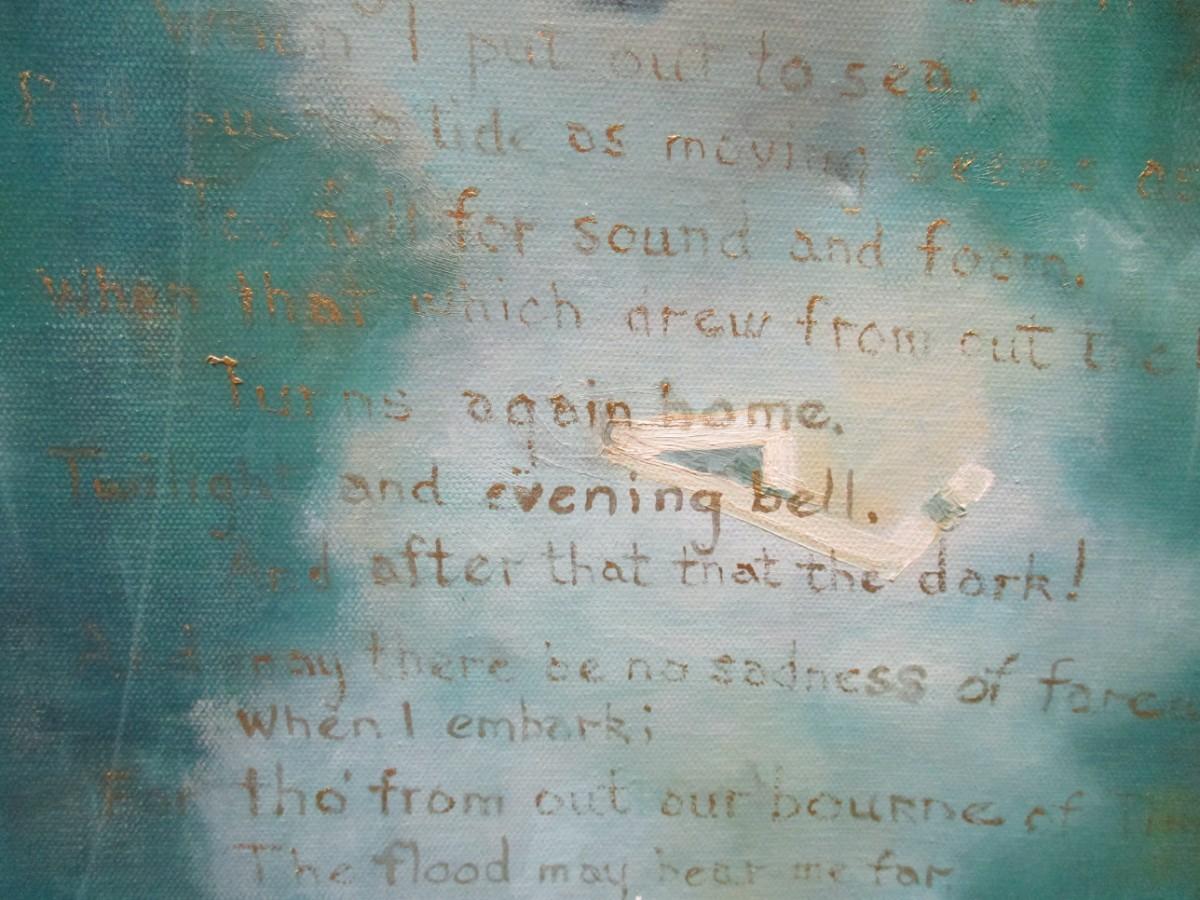 When I put out to sea,
such a tide as moving seems as
Too full for sound and foam,
When that which drew from out the
Turns again home.
Twilight and evening bell,
And after that that the dark!
And may there be no sadness of
When I embark;
For tho' from out our bourne of
The flood may bear me far